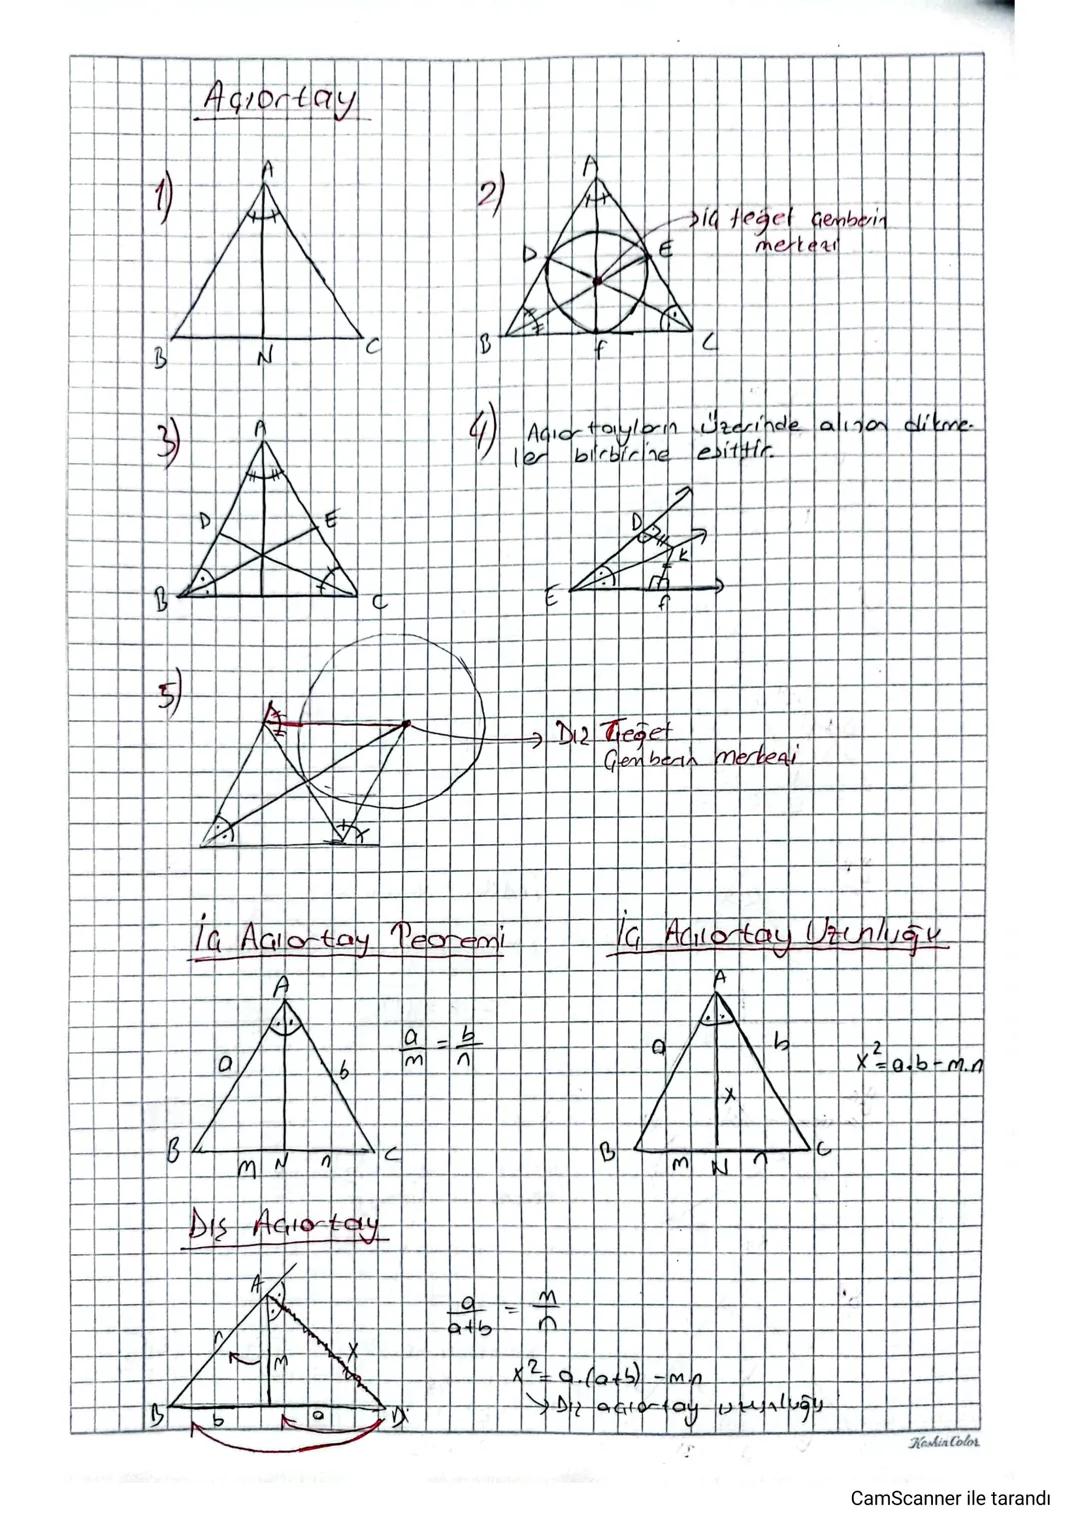 Açıortay
1)
A
B
N
C
2)
A
D
E
B
f
C
→ iç teğet çemberin
merkezi
3)
A
D
E
B
C
4) Açıortayların üzerinde alınan dikme-
ler birbirine eşittir.
D
K
E
f
5)
→ Dış Teğet
Çemberin merkezi
İç Açıortay Teoremi
A
a
b
B
m
N
n
C
a/m = b/n
İç Açıortay Uzunluğu
A
a
b
x
B
m
N
n
C
x² = a.b - m.n
Dış Açıortay
A
n
m
x
B
b
a
D
a/a+b = m/n
x² = a.(a+b) - m.n
→ Dış açıortay uzunluğu
KeskinColor
CamScanner ile tarandı